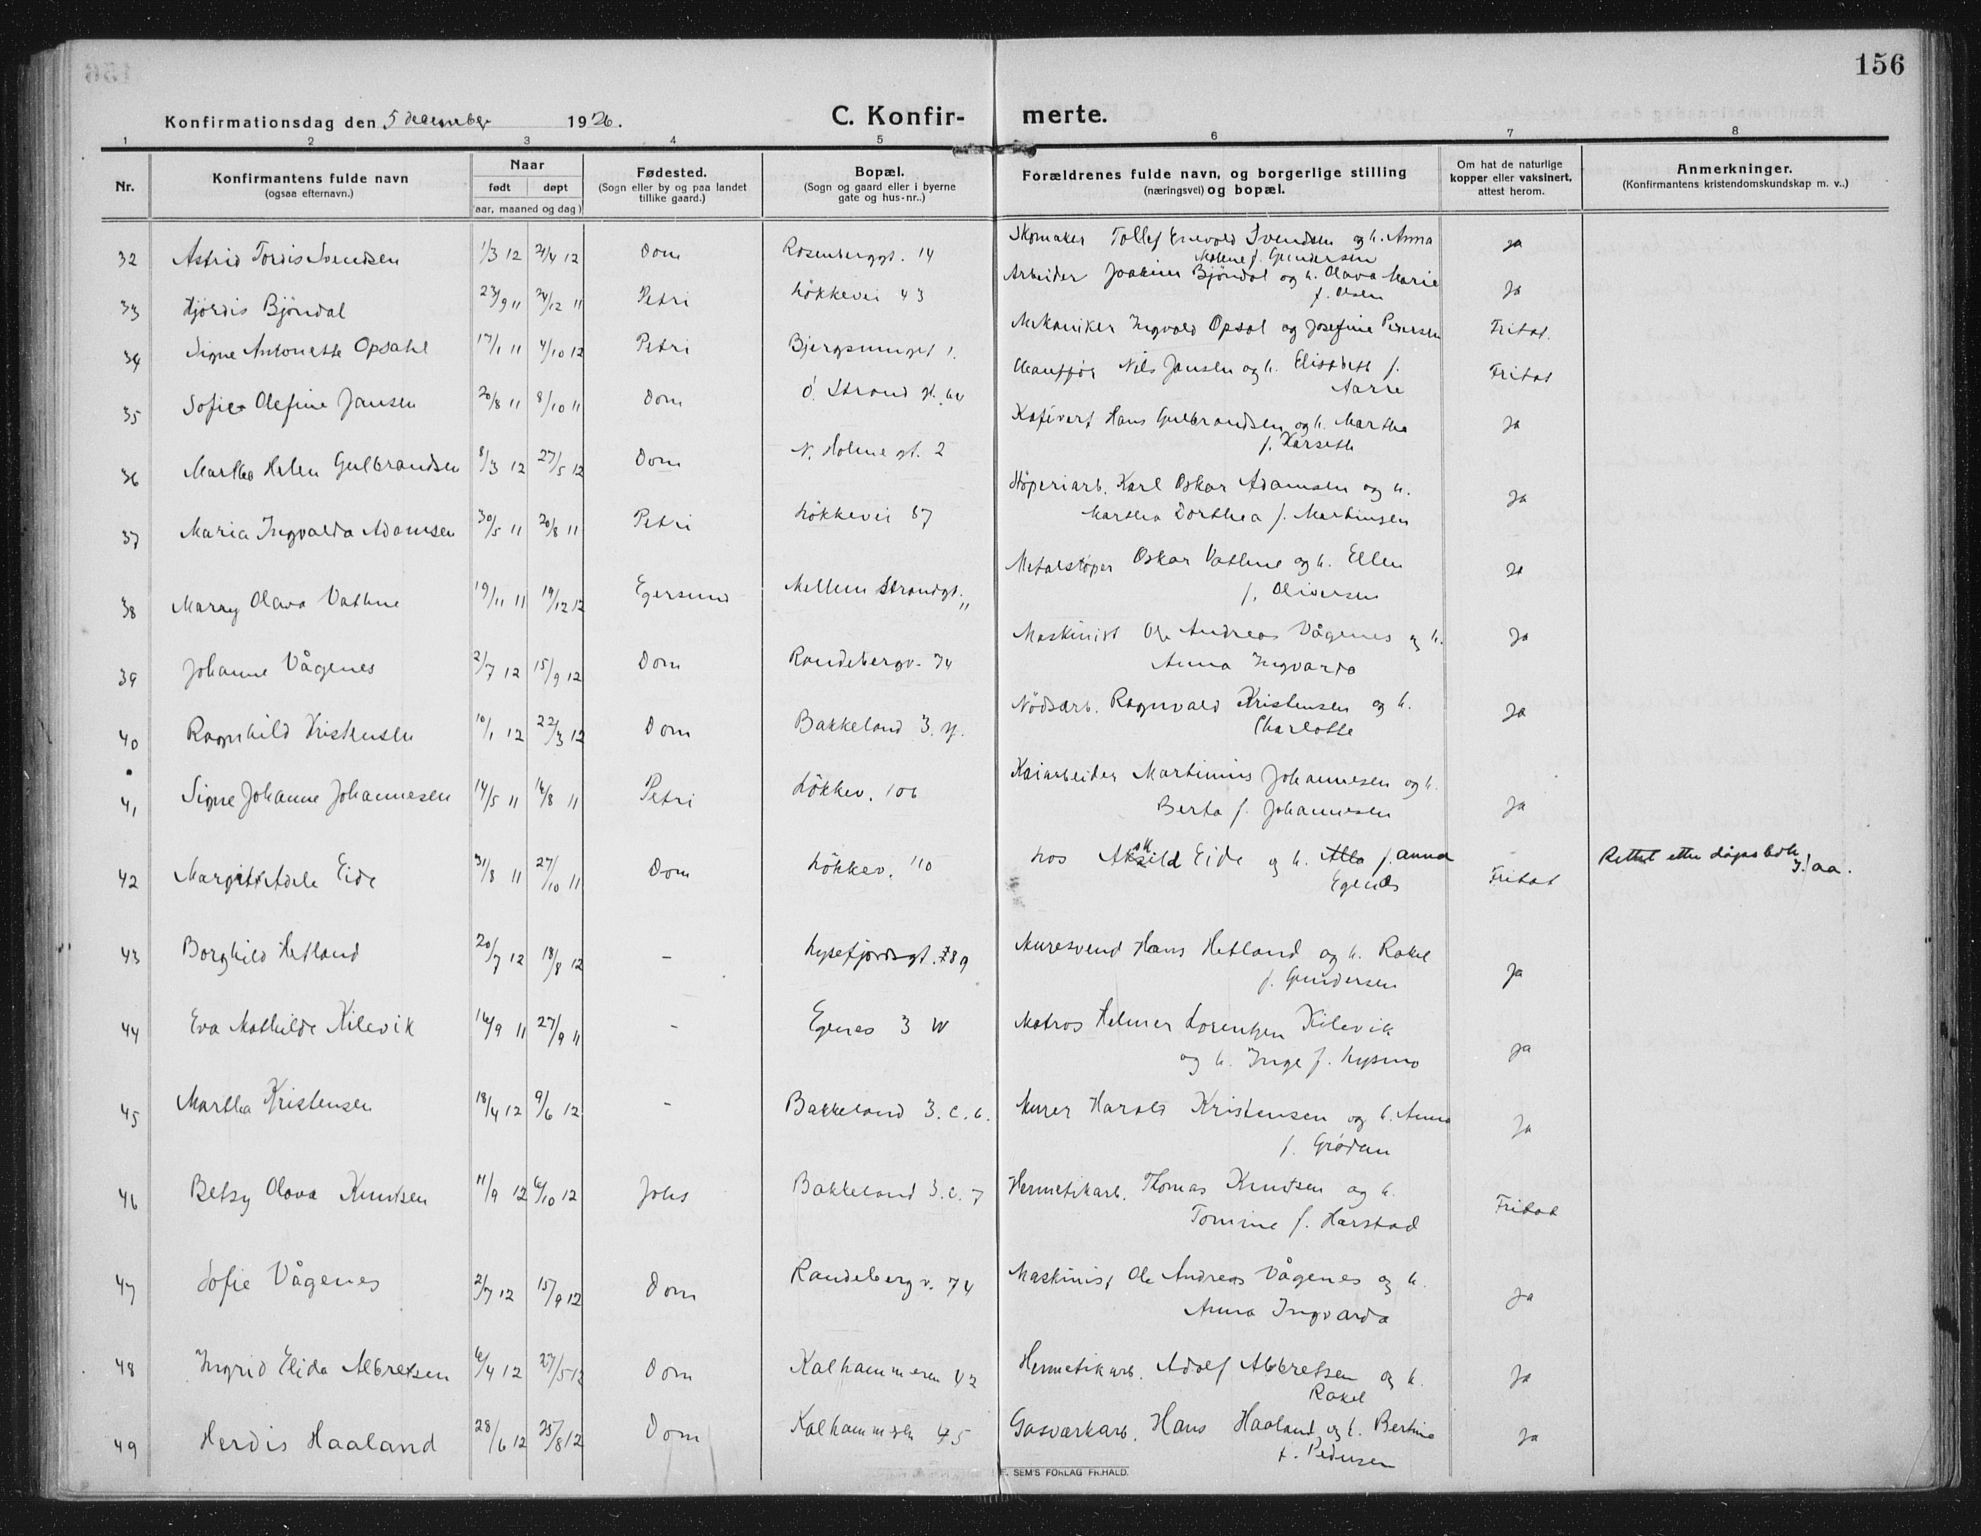 156
Konfirmationsdag den 5 december 1926.
C. Konfir- merte.
1 2 3 4 5 6 7 8
Nr.
Konfirmantens fulde navn
(ogsaa efternavn.)
Naar
født døpt
(aar, maaned og dag)
Fødested.
(Sogn eller by og paa landet
tillike gaard.)
Bopæl.
(Sogn og gaard eller i byerne
gate og hus-nr..)
Forældrenes fulde navn, og borgerlige stilling
(næringsvei) og bopæl.
Om hat de naturlige
kopper eller vaksinert,
attest herom.
Anmerkninger.
(Konfirmantens kristendomskundskap m. v..)
32 Astrid Tordis Svendsen 1/3 12 21/4 12 Dom Rosenberggt. 14 Skomaker Tollef Enevold Svendsen og h. Anna ja
Malene f. Gundersen
33 Hjørdis Bjöndal 23/9 11 24/12 11 Petri Lökkevei 43 Arbeider Joakim Bjöndal og h. Olava Marie ja
f. Olsen
34 Signe Antonette Opsahl 17/1 11 4/10 12 Petri 1. Mekaniker Ingvald Opsal og Josefine Petersen Fritat.
35 Sofie Olefine Jansen 20/8 11 8/10 11 Dom Ö. Strand gt. Nils Jansen og h. Elisabeth f. Fritat
Aarre
36 Martha Helen Gulbrandsen 8/3 12 27/5 12 Dom N. Holme gt. 2 Kafévert Hans Gulbrandsen og h. Martha ja
f. Karseth
37 Maria Ingvalda Adamsen 30/5 11 20/8 11 Petri Lökkevei 87 Støperiarb. Karl Oskar Adamsen og h. ja
Martha Dorthea f. Martinsen
38 Marry Olava Vathne 19/11 11 19/12 12 Egersund Mellem Strandgt. 11 Metalstøper Oskar Vathne og h. Ellen ja
f. Oliversen
39 Johanne Vågenes 2/7 12 15/9 12 Dom Randebergv. 74 Maskinist Ole Andreas Vågenes og h. ja
Anna Ingvarda
40 Ragnhild Kristensen 10/1 12 22/3 12 Dom Bakkeland 3. Nödsarb. Ragnvald Kristensen og h. ja
Charlotte
41 Signe Johanne Johannesen 14/5 11 16/8 11 Petri Lökkev. 106 Kaiarbeider Martinius Johannesen og h. ja
Berta f. Johannesen
42 Margit Adele Eide 31/8 11 27/10 11 Dom Lökkev. 110 Los Eide og h. Alla f. Anna Fritat Rettet etter dåpsbok
Egenes J. aa.
43 Borghild Hetland 20/7 12 18/8 12 – Lysefjordsgt. 89 Muresvend Hans Hetland og h. Rakel ja
f. Gundersen
44 Eva Mathilde Kilevik 16/9 11 27/9 11 – Egenes 3 W Matros Helmer Lorentzen Kilevik
og h. Inge f. Lysmo ja
45 Martha Kristensen 18/4 12 9/6 12 – Bakkeland 3. c. 6. Murer Harald Kristensen og h. Anna ja
f. Grödem
46 Betzy Olava Knutsen 11/9 12 6/10 12 Johs Bakkeland 3. c. 7 Hermetikarb. Thomas Knutsen og h. Fritat
Tomine f. Harstad
47 Sofie Vågenes 2/7 12 15/9 12 Dom Randebergv. 74 Maskinist Ole Andreas Vågenes og h. ja
Anna Ingvarda
48 Ingrid Elida Albretsen 6/4 12 27/5 12 Dom Kalhammeren 42 Hermetikarb. Adolf Albretsen og h. ja
Rakel
49 Herdis Haaland 28/6 12 25/8 12 Dom Kalhammeren 45 Gasværkarb. Hans Haaland og h. Bertine ja
f. Pedersen
SEM'S FORLAG FR.HALD.